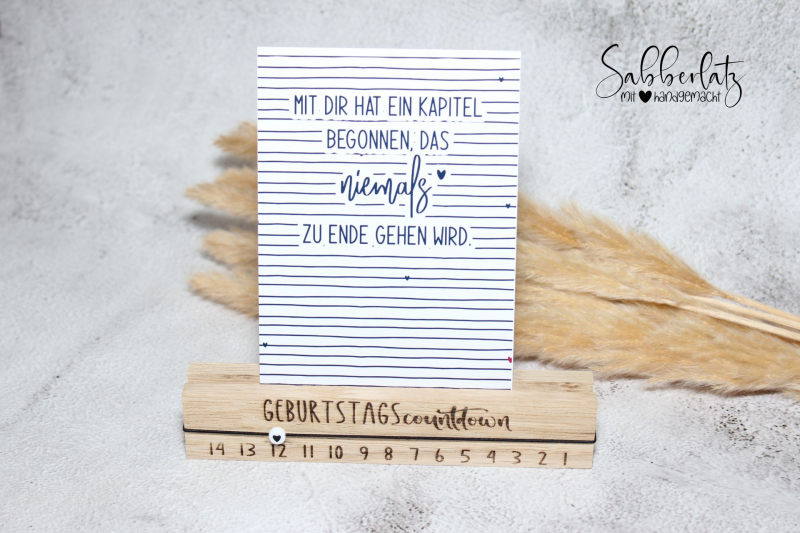 Sabberlatz
mit handgemacht
MIT DIR HAT EIN KAPITEL
BEGONNEN, DAS
niemals
ZU ENDE GEHEN WIRD.
GEBURTSTAGScountdown
14 13 12 11 10 9 8 7 6 5 4 3 2 1